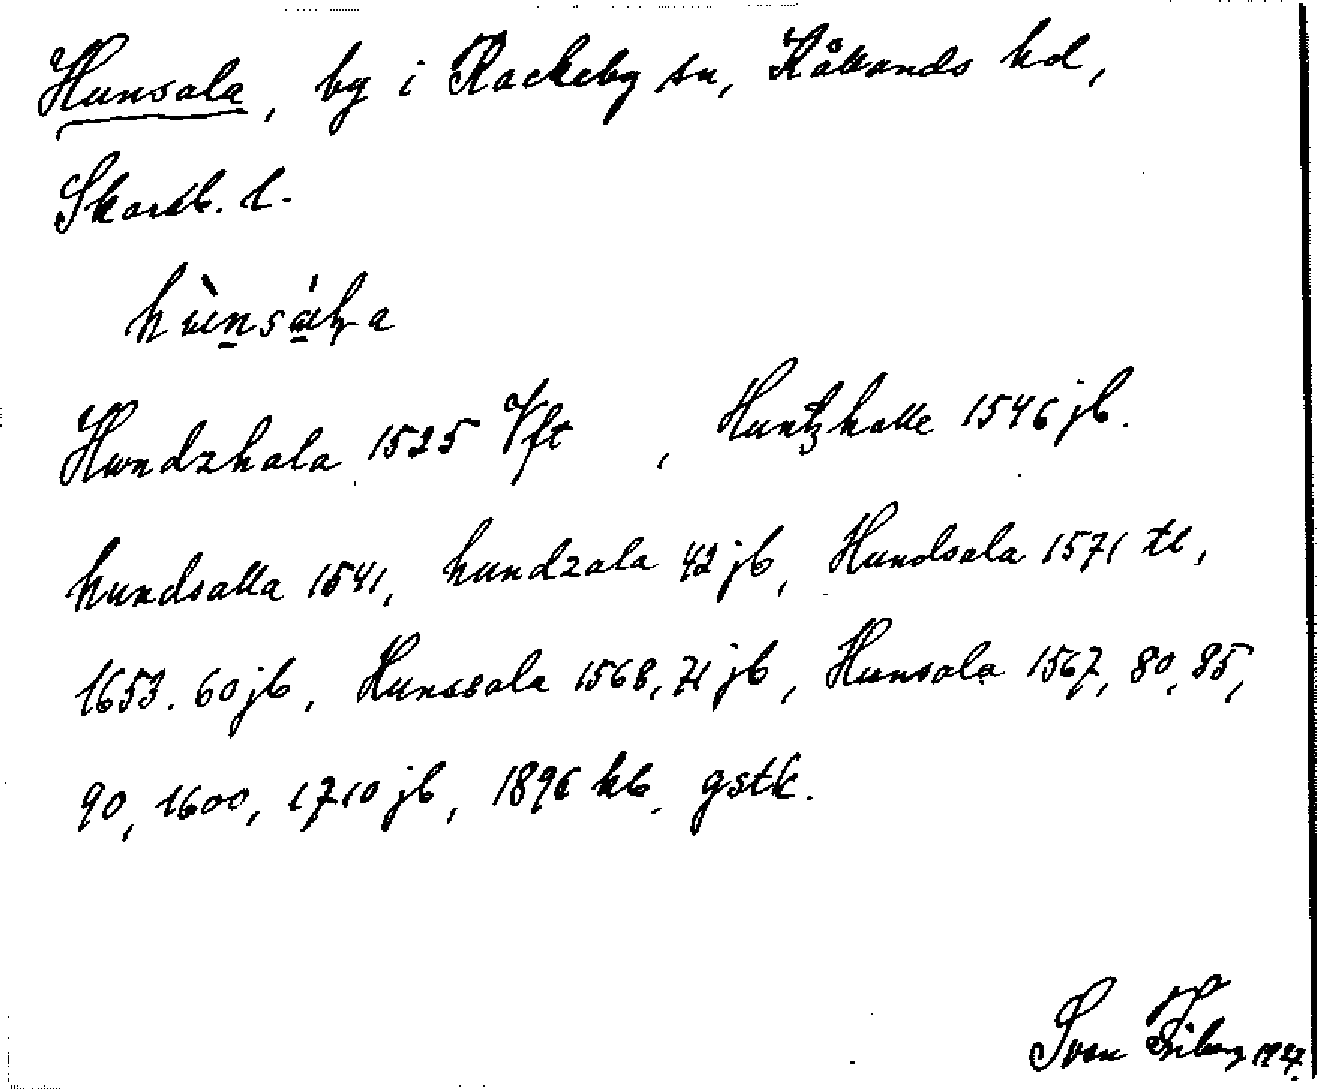 Hunsala, by i Rackeby sn, Kållands hd,
Skarab. l.
hùnsáɫa
Hundzhala 1525 Vft, Huntzhalle 1546 jb.
hundsalla 1541, hundzala 42 jb, Hundsala 1571 tl,
1653. 60 jb, Hunssala 1568, 71 jb, Hunsala 1567, 80, 85,
90, 1600, 1710 jb, 1896 kb, gstk.
Sven Friberg 1927.